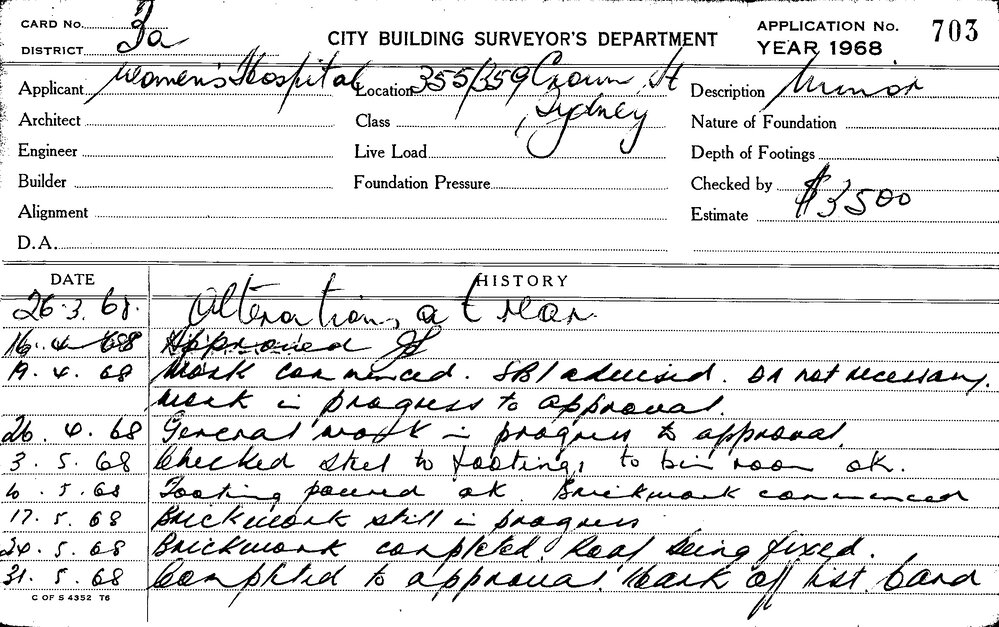 CARD No.
DISTRICT 3a
CITY BUILDING SURVEYOR'S DEPARTMENT
APPLICATION No. 703
YEAR 1968
Applicant Women's Hospital Location 355/359 Crown St Description Minor
Architect Class , Sydney Nature of Foundation
Engineer Live Load Depth of Footings
Builder Foundation Pressure Checked by
Alignment Estimate $3500
D.A.
DATE HISTORY
26.3.68. Alterations at rear.
16.4.68 Approved
19.4.68 Work commenced. SBI advised. DA not necessary.
Work in progress to approval.
26.4.68 General work in progress to approval.
3.5.68 Checked steel to footings to bin room ok.
6.5.68 Footing poured ok. Brickwork commenced
17.5.68 Brickwork still in progress
24.5.68 Brickwork completed. Roof being fixed.
31.5.68 Completed to approval. Mark off list. Card
C OF S 4352 T6